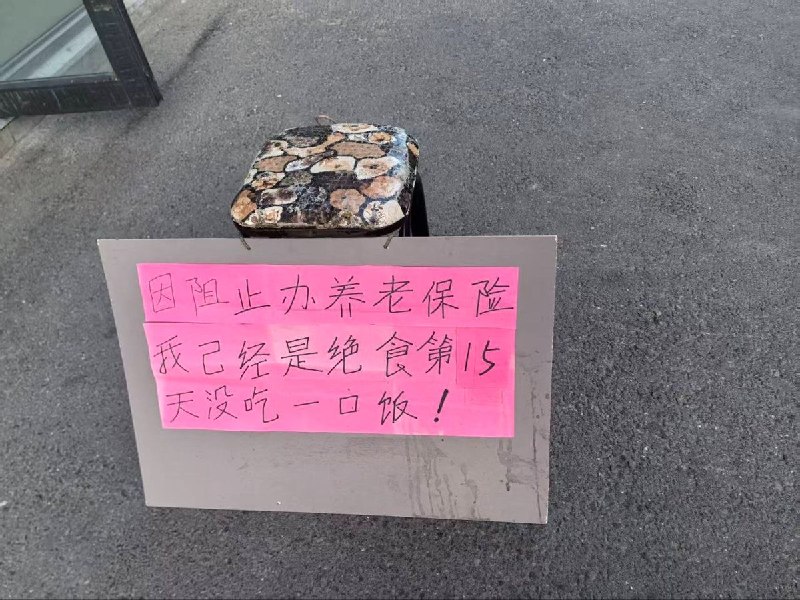 因阻止办养老保险
我已经是绝食第15
天没吃一口饭！